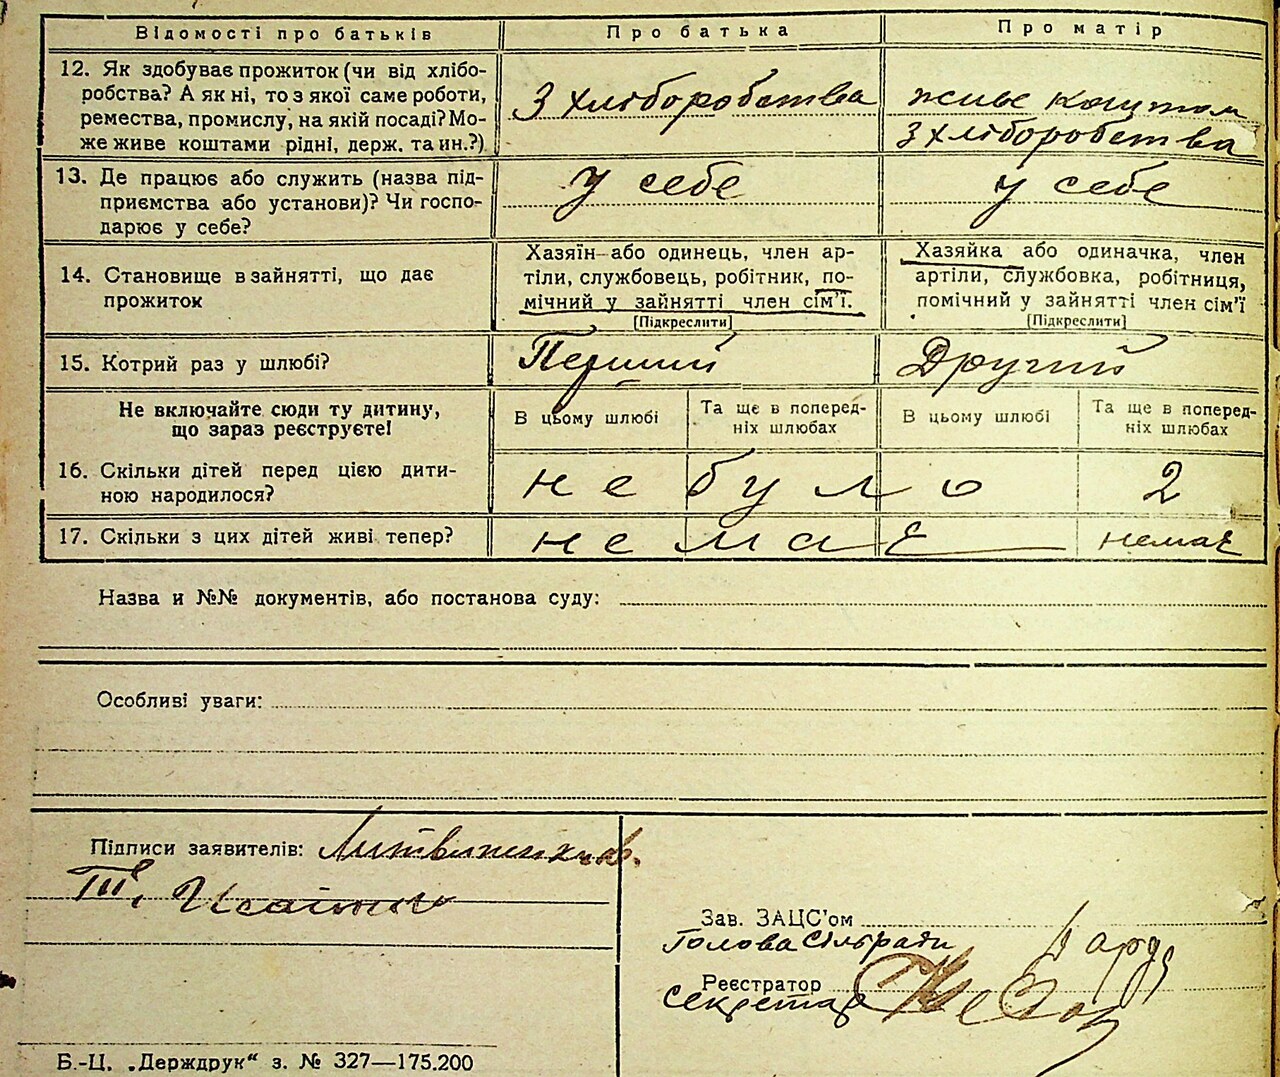 Відомості про батьків
Про батька
Про матір
12. Як здобуває прожиток (чи від хлібо-
робства? А як ні, то з якої саме роботи,
ремества, промислу, на якій посаді? Мо-
же живе коштами рідні, держ. та ин.?)
З хліборобства
живе коштом
З хліборобства
13. Де працює або служить (назва під-
приємства або установи)? Чи госпо-
дарює у себе?
у себе
у себе
14. Становище в зайнятті, що дає
прожиток
Хазяїн або одинець, член ар-
тіли, службовець, робітник, по-
мічний у зайнятті член сім'ї.
[Підкреслити]
Хазяйка або одиначка, член
артіли, службовка, робітниця,
помічний у зайнятті член сім'ї
[Підкреслити]
15. Котрий раз у шлюбі?
Перший
Другий
Не включайте сюди ту дитину,
що зараз реєструєте!
В цьому шлюбі
Та ще в поперед-
ніх шлюбах
В цьому шлюбі
Та ще в поперед-
ніх шлюбах
16. Скільки дітей перед цією дити-
ною народилося?
не було
2
17. Скільки з цих дітей живі тепер?
немає
немає
Назва и №№ документів, або постанова суду:
Особливі уваги:
Підписи заявителів:
Зав. ЗАЦС'ом
Голова сільради
Реєстратор
секретар
Б.-Ц. „Держдрук“ з. № 327—175.200